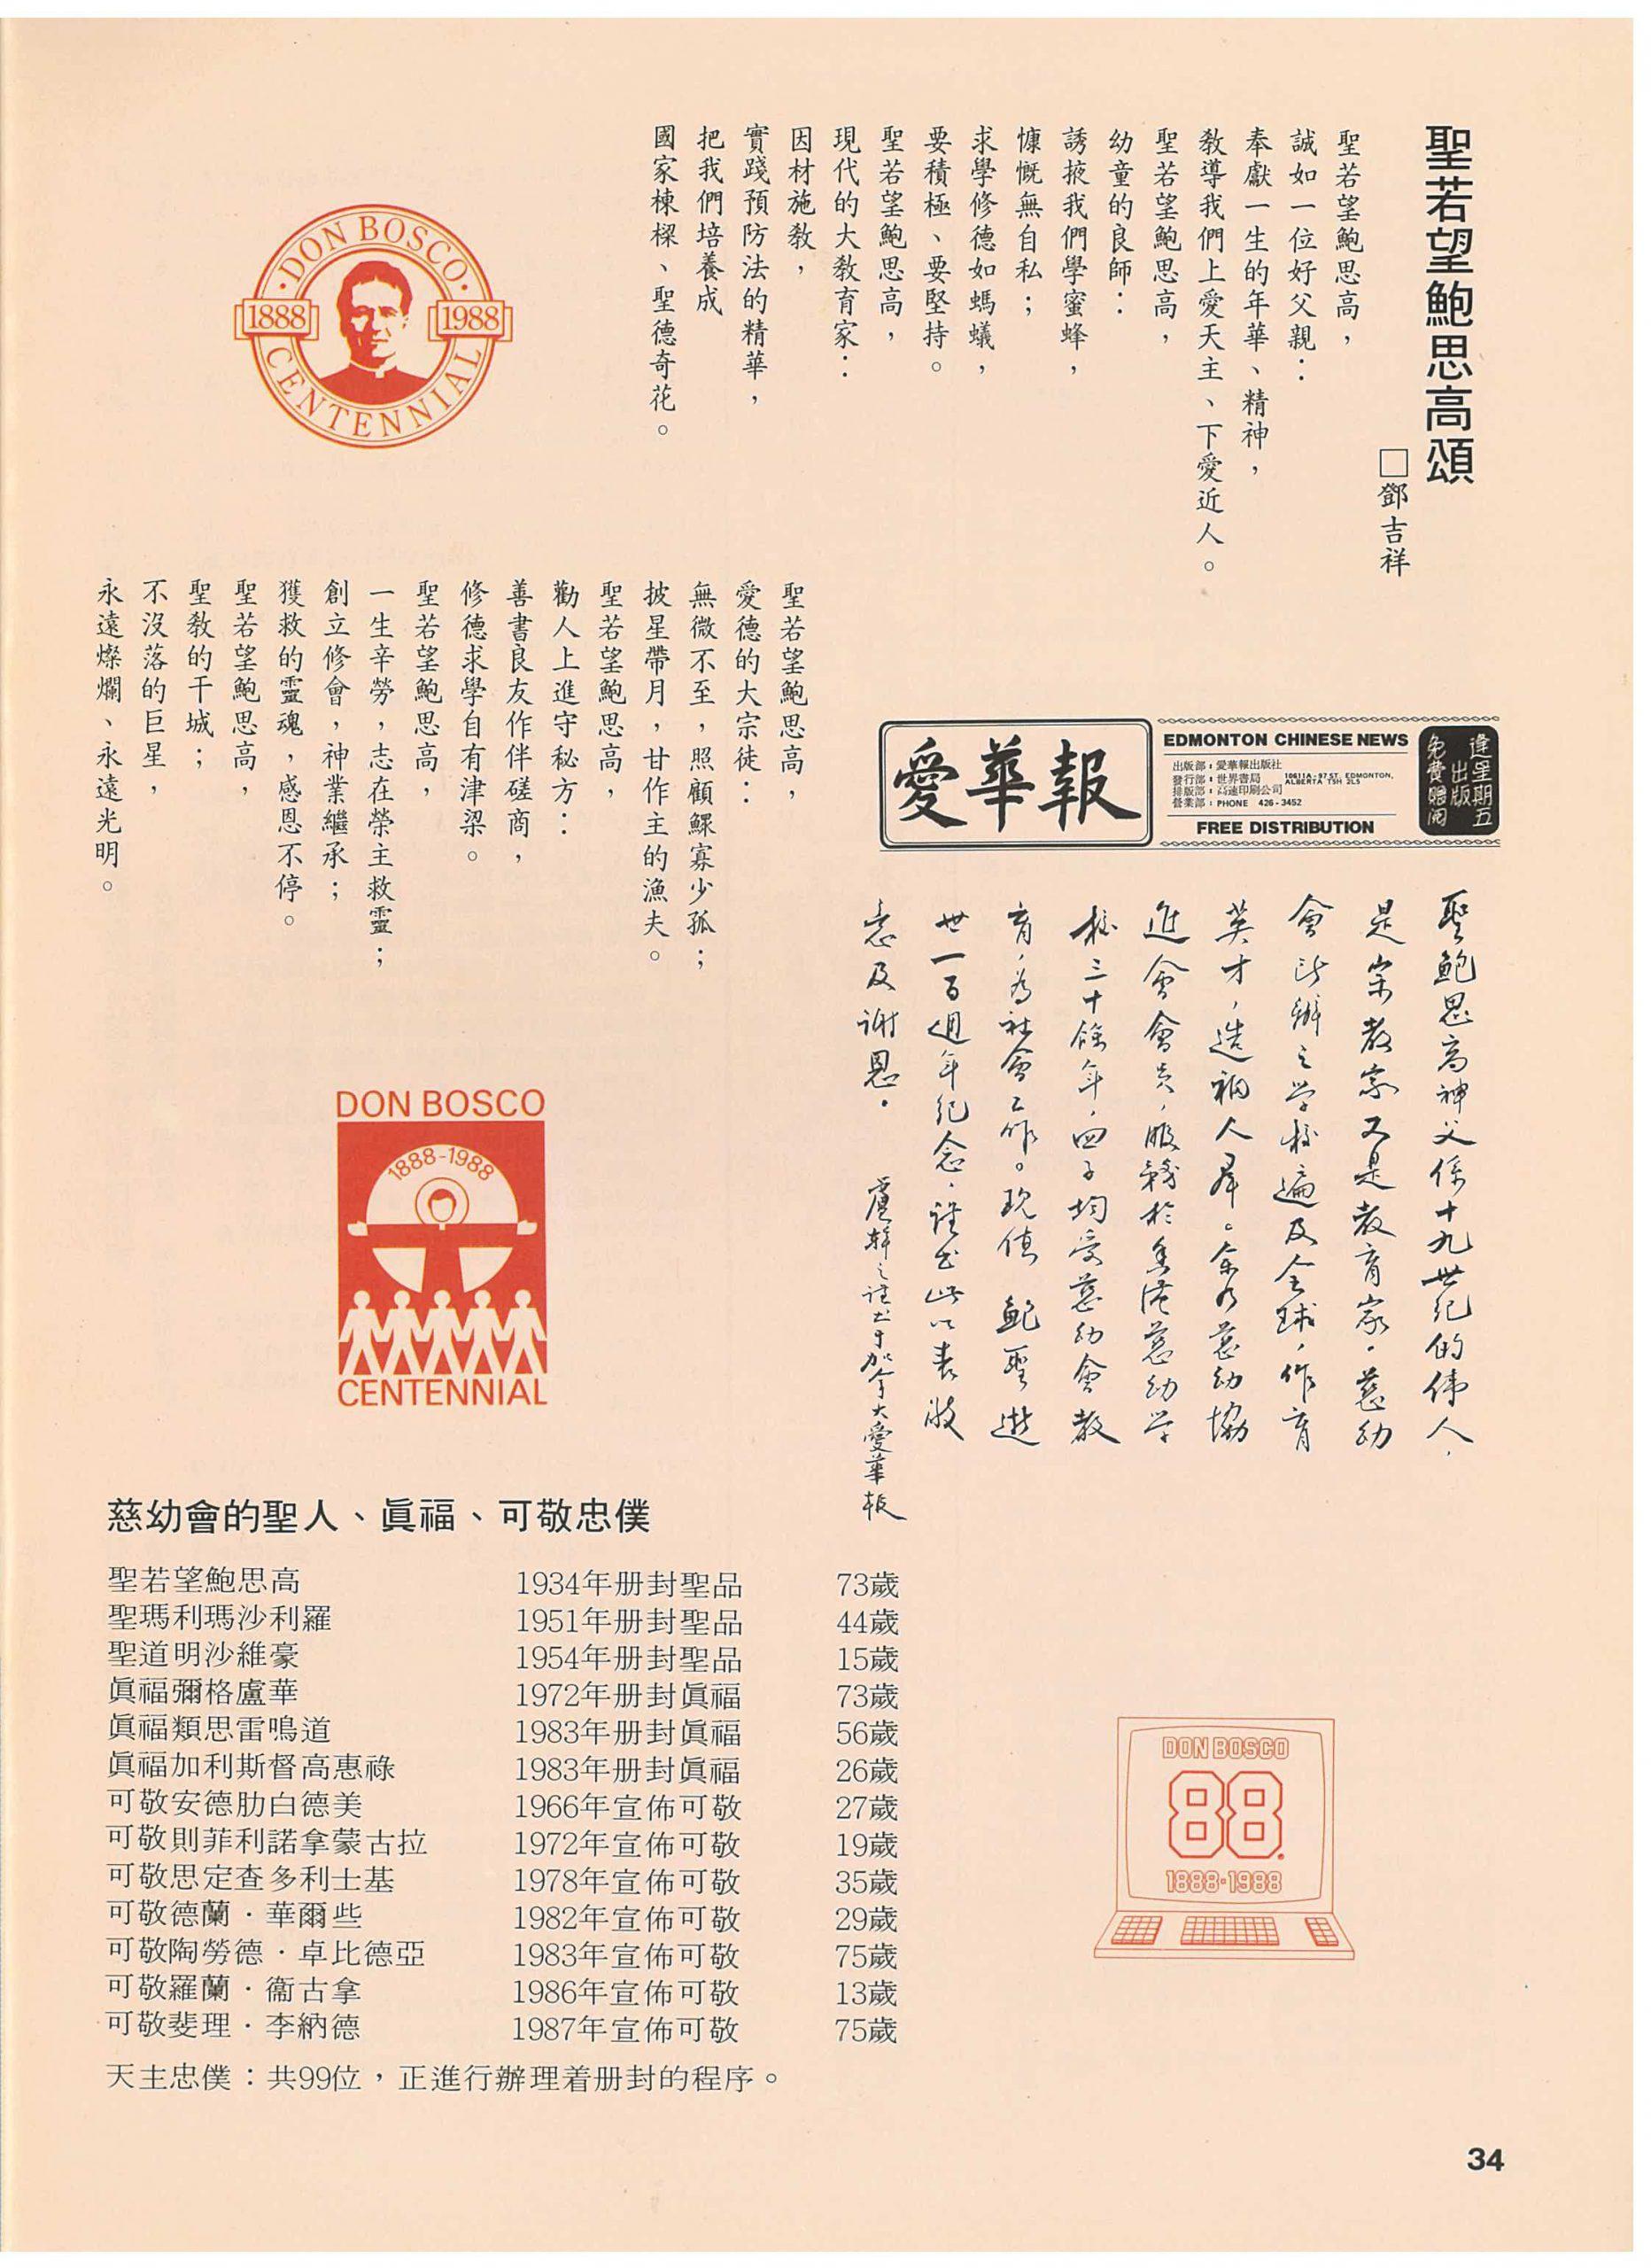 聖若望鮑思高頌
□鄧吉祥
聖若望鮑思高，
誠如一位好父親：
奉獻一生的年華、精神，
教導我們上愛天主、下愛近人。
聖若望鮑思高，
幼童的良師：
誘掖我們學蜜蜂，
慷慨無自私；
求學修德如螞蟻，
要積極、要堅持。
聖若望鮑思高，
現代的大教育家：
因材施教，
實踐預防法的精華，
把我們培養成
國家棟樑、聖德奇花。
聖若望鮑思高，
愛德的大宗徒：
無微不至，照顧鰥寡少孤；
披星帶月，甘作主的漁夫。
聖若望鮑思高，
勸人上進守秘方：
善書良友作伴磋商，
修德求學自有津梁。
聖若望鮑思高，
一生辛勞，志在榮主救靈；
創立修會，神業繼承；
獲救的靈魂，感恩不停。
聖若望鮑思高，
聖教的干城；
不沒落的巨星，
永遠燦爛、永遠光明。
·DON BOSCO·
1888
1988
CENTENNIAL
愛華報
EDMONTON CHINESE NEWS
出版部：愛華報出版社
發行部：世界書局
10611A-97 ST. EDMONTON,
ALBERTA T5H 2L5
排版部：高速印刷公司
營業部：PHONE 426-3452
FREE DISTRIBUTION
逢星期五
出版
免費贈閱
聖鮑思高神父係十九世紀的偉人，
是宗教家又是教育家。慈幼
會所辦之学校遍及全球，作育
英才，造福人羣。余乃慈幼協
進會會員，服務於香港慈幼学
校三十餘年，四子均受慈幼會教
育，為社會工作。現值 鮑聖逝
世一百週年紀念，謹書此以表敬
意及謝恩。
盧幹之謹書于加拿大愛華報
DON BOSCO
1888-1988
CENTENNIAL
慈幼會的聖人、眞福、可敬忠僕
聖若望鮑思高 1934年册封聖品 73歲
聖瑪利瑪沙利羅 1951年册封聖品 44歲
聖道明沙維豪 1954年册封聖品 15歲
眞福彌格盧華 1972年册封眞福 73歲
眞福類思雷鳴道 1983年册封眞福 56歲
眞福加利斯督高惠祿 1983年册封眞福 26歲
可敬安德肋白德美 1966年宣佈可敬 27歲
可敬則菲利諾拿蒙古拉 1972年宣佈可敬 19歲
可敬思定查多利士基 1978年宣佈可敬 35歲
可敬德蘭·華爾些 1982年宣佈可敬 29歲
可敬陶勞德·卓比德亞 1983年宣佈可敬 75歲
可敬羅蘭·衞古拿 1986年宣佈可敬 13歲
可敬斐理·李納德 1987年宣佈可敬 75歲
天主忠僕：共99位，正進行辦理着册封的程序。
DON BOSCO
88.
1888·1988
34